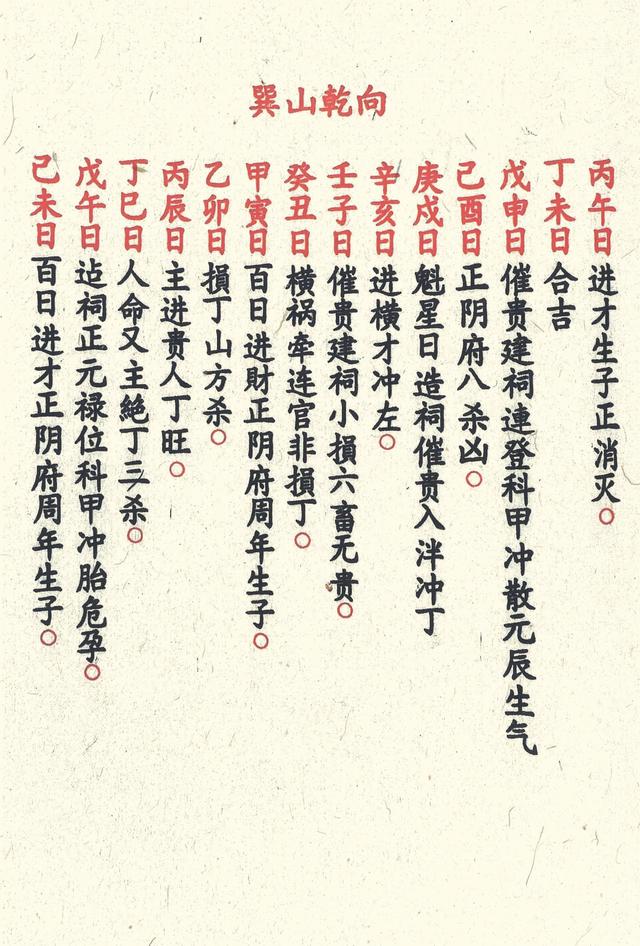 巽山乾向
丙午日进才生子正消灭○
丁未日合吉
戊申日催贵建祠連登科甲冲散元辰生气
己酉日正阴府八杀凶○
庚戍日魁星日造祠催贵入泮冲丁
辛亥日进横才冲左○
壬子日催贵建祠小損六畜无贵○
癸丑日横祸牵连官非損丁○
甲寅日百日进財正阴府周年生子○
乙卯日損丁山方杀○
丙辰日主进贵人丁旺○
丁巳日人命又主絶丁三杀○
戊午日迠祠正元禄位科甲冲胎危孕○
己未日百日进才正阴府周年生子○